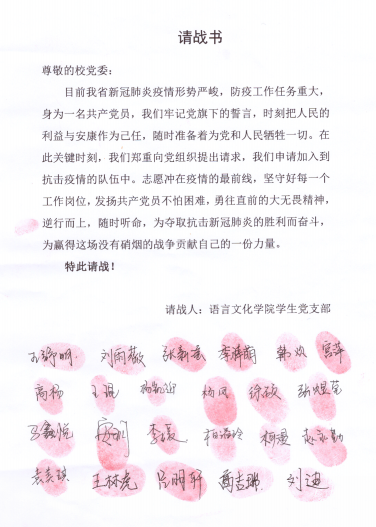 请战书
尊敬的校党委：
目前我省新冠肺炎疫情形势严峻，防疫工作任务重大，
身为一名共产党员，我们牢记党旗下的誓言，时刻把人民的
利益与安康作为己任，随时准备着为党和人民牺牲一切。在
此关键时刻，我们郑重向党组织提出请求，我们申请加入到
抗击疫情的队伍中。志愿冲在疫情的最前线，坚守好每一个
工作岗位，发扬共产党员不怕困难，勇往直前的大无畏精神，
逆行而上，随时听命，为夺取抗击新冠肺炎的胜利而奋斗，
为赢得这场没有硝烟的战争贡献自己的一份力量。
特此请战！
请战人：语言文化学院学生党支部
刘雨薇 宫萍
高杨 王琨 杨凯迎 杨凤 徐硕
马鑫悦 李媛
王林虎 吕明轩 刘迪